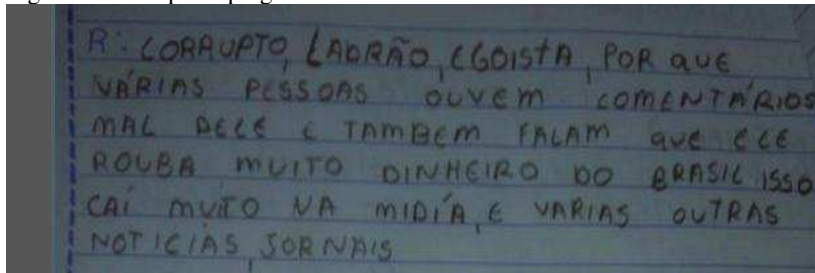 R: CORRUPTO, LADRÃO, EGOISTA, POR QUE
VÁRIAS PESSOAS OUVEM COMENTÁRIOS
MAL DELE E TAMBEM FALAM QUE ELE
ROUBA MUITO DINHEIRO DO BRASIL ISSO
CAÍ MUITO NA MIDÍA, E VARIAS OUTRAS
NOTICIAS, JORNAIS